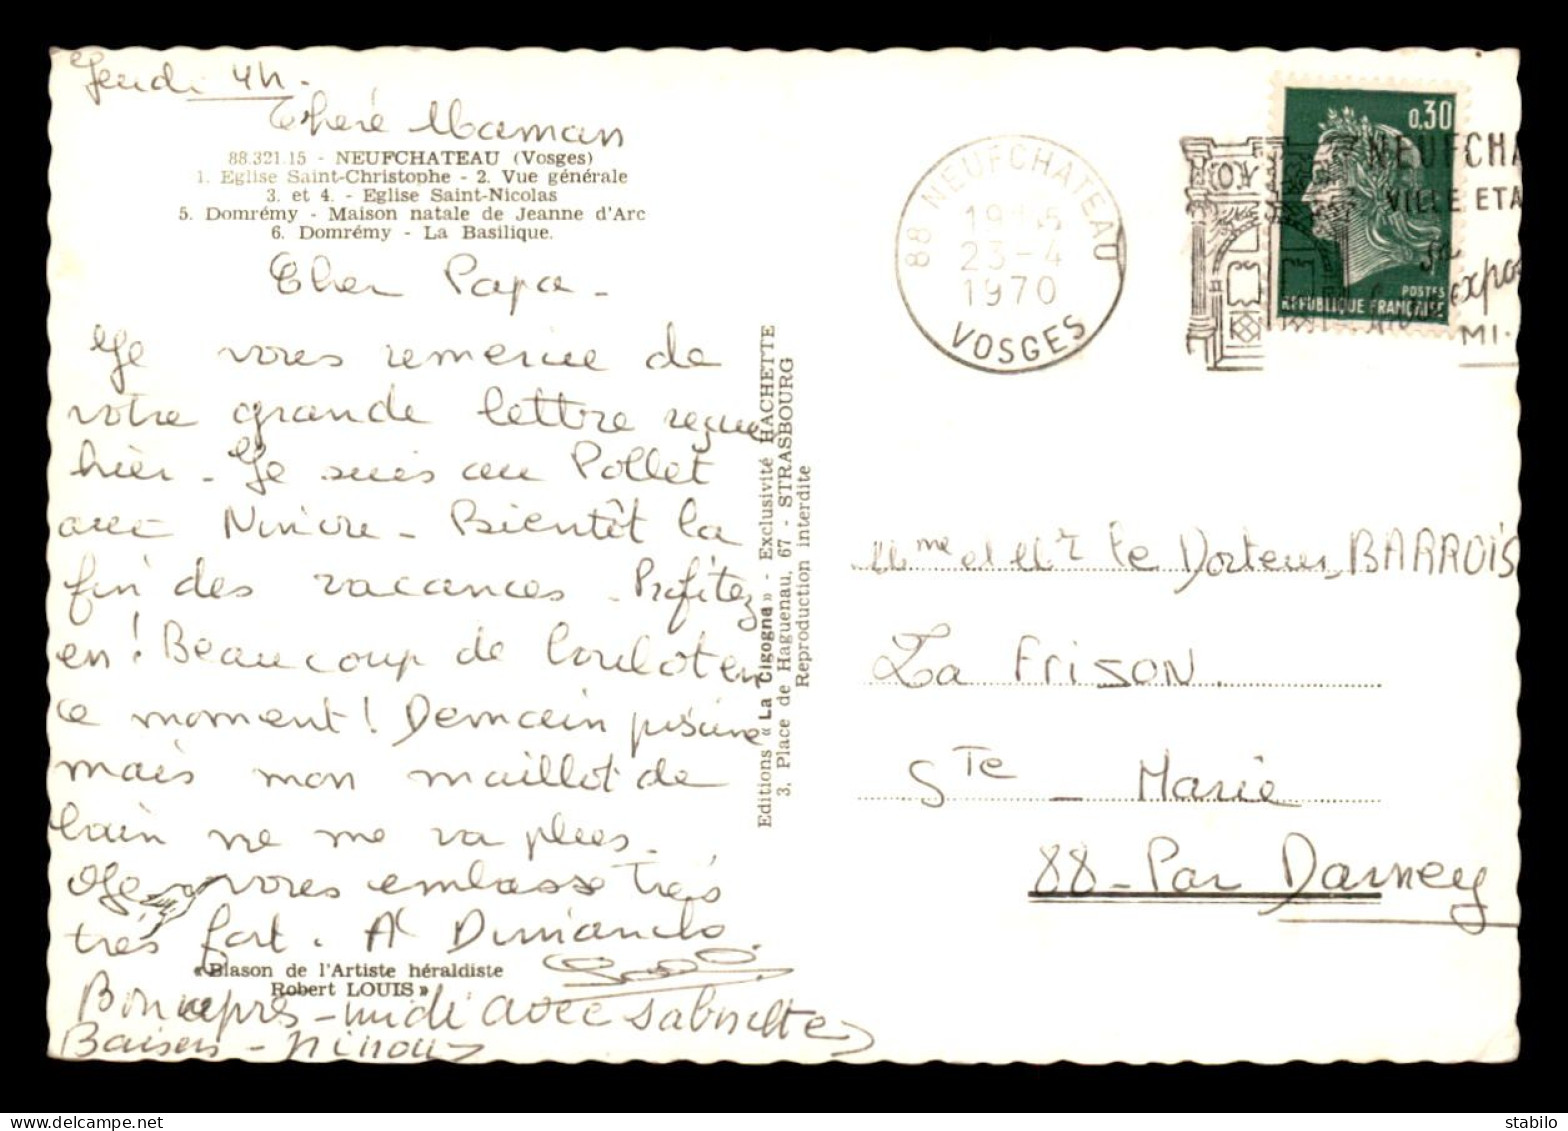 Jeudi 4h.
Chère Maman
88.321.15 - NEUFCHATEAU (Vosges)
1. Eglise Saint-Christophe - 2. Vue générale
3. et 4. - Eglise Saint-Nicolas
5. Domrémy - Maison natale de Jeanne d'Arc
6. Domrémy - La Basilique.
Cher Papa -
Je vous remercie de
votre grande lettre reçue
hier - Je suis au Pollet
avec - Bientôt la
fin des vacances - Profitez
en! Beaucoup de boulot en
ce moment! Demain piscine
mais mon maillot de
bain ne me va plus.
Je vous embrasse très
très fort. A Dimanche.
« Blason de l'Artiste héraldiste
Robert LOUIS »
Bon après-midi avec
Baisers - Ninou
Editions « La Cigogne » - Exclusivité HACHETTE
3, Place de Haguenau, 67 - STRASBOURG
Reproduction interdite
88 NEUFCHATEAU
23-4
1970
VOSGES
0,30
POSTES
REPUBLIQUE FRANÇAISE
NEUFCHA
VILLE ETA
sa
expo
MI-
Mme et Mr le Docteur BARROIS
La Frison.
Ste - Marie
88 - Par Darney